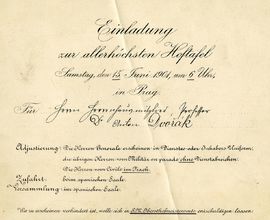 Einladung
zur allerhöchsten Hoftafel
Samstag, den 15. Juni 1901, um 6 Uhr,
in Prag.
Für Herrn Herrenhausmitglied Professor
Dr Anton Dvořák
Adjustierung: Die Herren Generale erscheinen in Dienstes-oder Inhabers Uniform;
die übrigen Herren vom Militär en parade ohne Dienstabzeichen.
Die Herren vom Civile im Frack.
Zufahrt: beim spanischen Saale.
Versammlung: im spanischen Saale.
Wer zu erscheinen verhindert ist, wolle sich im entschuldigen lassen.